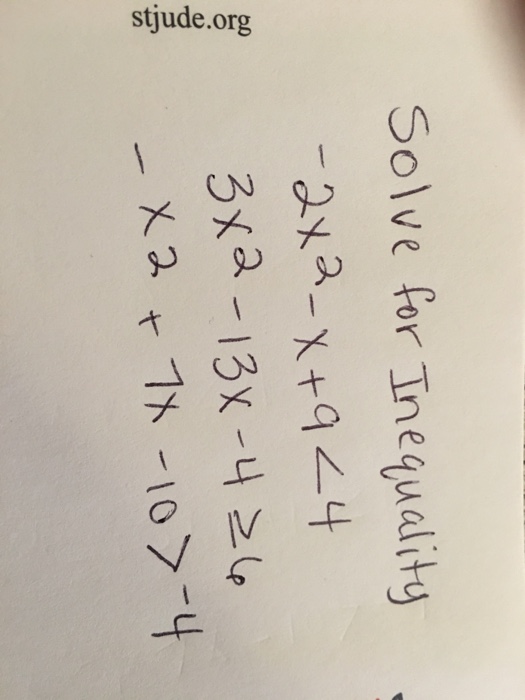 stjude.org
Solve for Inequality
-2x2-x+9<4
3x2-13x-4≥6
-x2+7x-10>-4